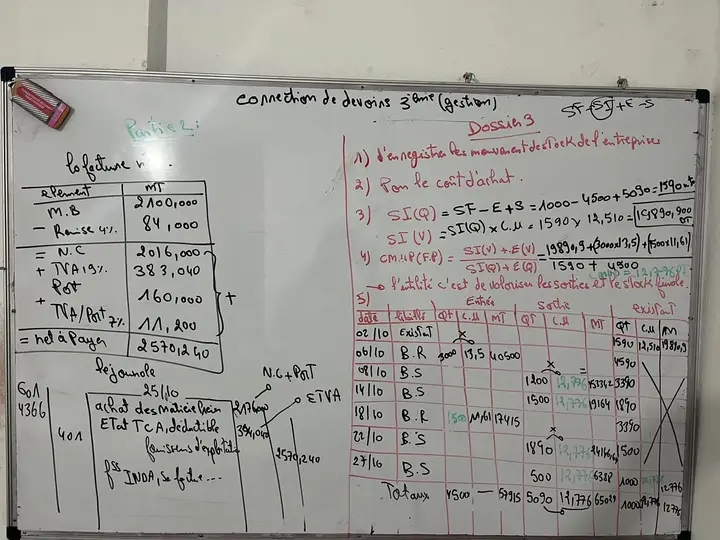 correction de devoirs 3ème (gestion)
SF=SI+E-S
Partie 2:
la facture n° ...
element MT
M.B 2100,000
- Remise 4% 84,000
= N.C 2016,000
+ TVA 19% 383,040
+ Port 160,000
TVA/Port 7% 11,200
+
= net à Payer 2570,240
le journale
25/10
N.C + PORT
601
4366
401
achat des matière 2176,000
ETAT TCA, déductible 394,040
ETVA
fournisseurs d'exploitation 2570,240
fss INDA, sa facture ...
Dossier 3
1) d'enregistrer les mouvement de stock de l'entreprise
2) Par le coût d'achat.
3) SI(Q) = SF - E + S = 1000 - 4500 + 5090 = 1590 m²
SI(V) = SI(Q) x C.U = 1590 x 12,510 = 19890,900 DT
4) C.M.U.P(F.P) = SI(V) + E(V) = 19890,9 + (3000x13,5) + (1500x11,61)
SI(Q) + E(Q) 1590 + 4500
= 12,776
→ l'utilité c'est de valoriser les sorties et le stock finale.
5) Entrée Sortie existant
date libellé QT C.U MT QT C.U MT QT C.U M
02/10 Existant 1590 12,510 19890,9
06/10 B.R 3000 13,5 40500 4590
08/10 B.S 1200 12,776 3390
14/10 B.S 1500 12,776 19164 1890
18/10 B.R 1500 11,61 17415 3390
22/10 B.S 1890 12,776 1500
27/10 B.S 500 12,776 6388 1000 12776
Totaux 4500 — 57915 5090 12,776 1000 12,776 12776